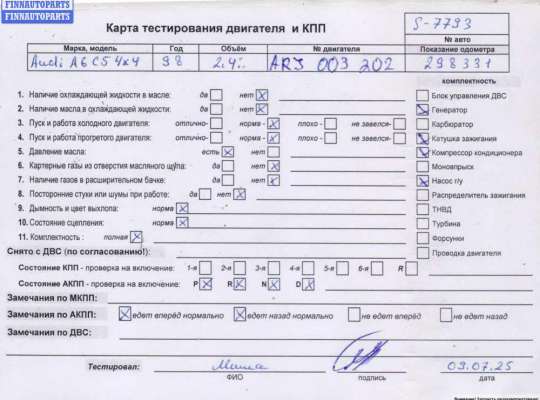 FINNAUTOPARTS
FINNAUTOPARTS
Карта тестирования двигателя и КПП
S-7793
№ авто
Марка, модель Год Объём № двигателя Показание одометра
Audi A6 C5 4x4 98 2.4i ARJ 003 202 298331
комплектность
1. Наличие охлаждающей жидкости в масле: да нет
2. Наличие масла в охлаждающей жидкости: да нет
3. Пуск и работа холодного двигателя: отлично- норма - плохо - не завелся-
4. Пуск и работа прогретого двигателя: отлично- норма - плохо - не завелся-
5. Давление масла: есть нет
6. Картерные газы из отверстия масляного щупа: да нет
7. Наличие газов в расширительном бачке: да нет
8. Посторонние стуки или шумы при работе: да нет
9. Дымность и цвет выхлопа: норма
10. Состояние сцепления: норма
11. Комплектность : полная
Блок управления ДВС
Генератор
Карбюратор
Катушка зажигания
Компрессор кондиционера
Моновпрыск
Насос г/у
Распределитель зажигания
ТНВД
Турбина
Форсунки
Проводка двигателя
Снято с ДВС (по согласованию!):
Состояние КПП - проверка на включение: 1-я 2-я 3-я 4-я 5-я 6-я R
Состояние АКПП - проверка на включение: P R N D
Замечания по МКПП:
Замечания по АКПП: едет вперёд нормально едет назад нормально не едет вперёд не едет назад
Замечания по ДВС:
Тестировал: Миша 09.07.25
ФИО подпись дата